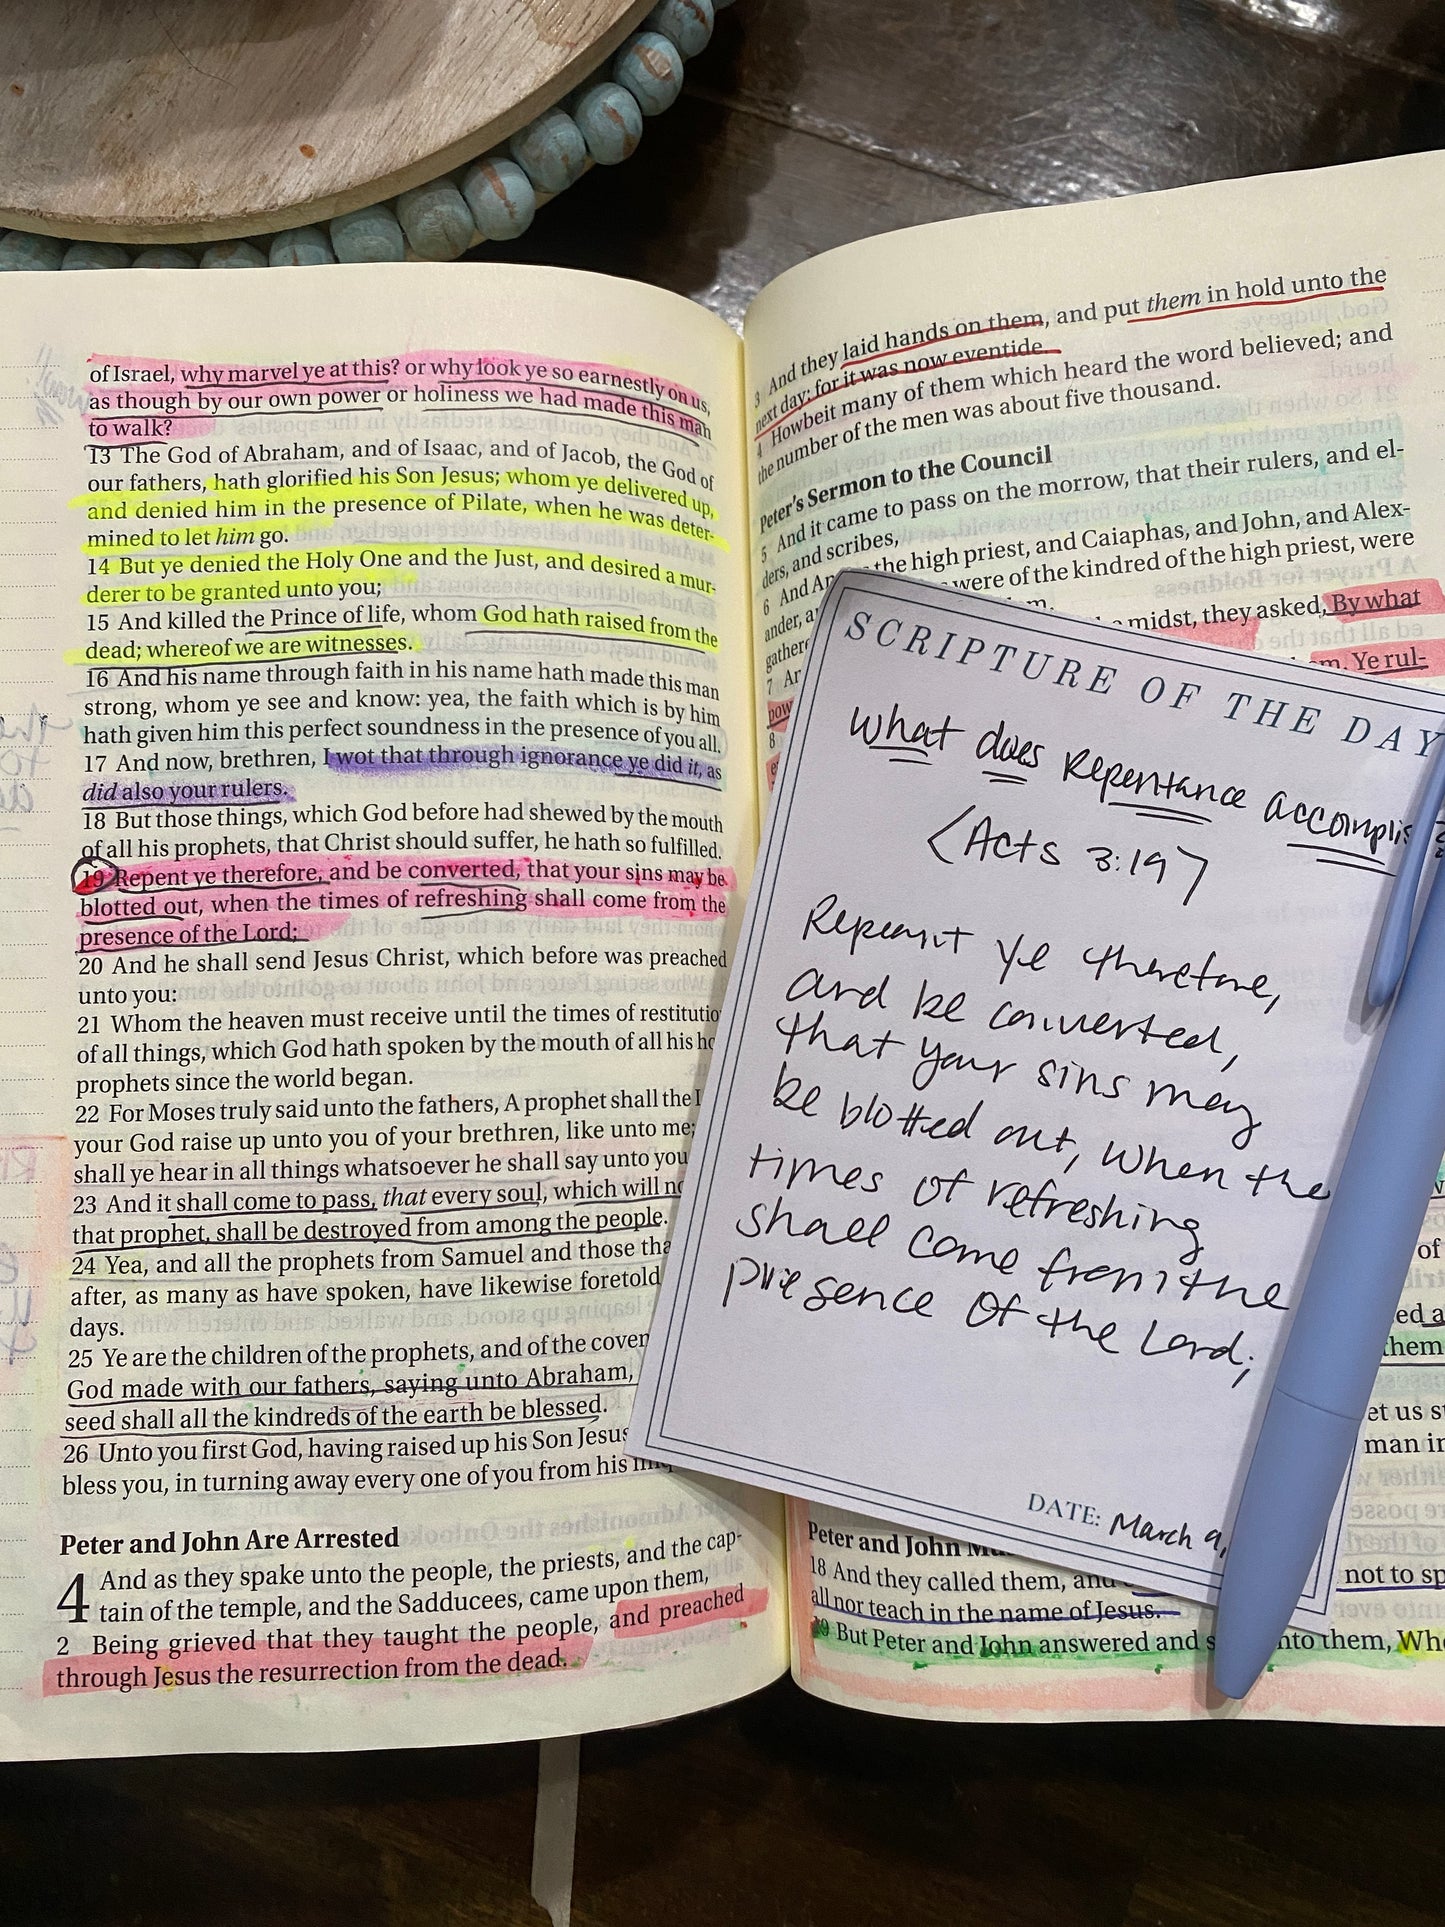 of Israel, why marvel ye at this? or why look ye so earnestly on us,
as though by our own power or holiness we had made this man
to walk?
13 The God of Abraham, and of Isaac, and of Jacob, the God of
our fathers, hath glorified his Son Jesus; whom ye delivered up,
and denied him in the presence of Pilate, when he was deter-
mined to let him go.
14 But ye denied the Holy One and the Just, and desired a mur-
derer to be granted unto you;
15 And killed the Prince of life, whom God hath raised from the
dead; whereof we are witnesses.
16 And his name through faith in his name hath made this man
strong, whom ye see and know: yea, the faith which is by him
hath given him this perfect soundness in the presence of you all.
17 And now, brethren, I wot that through ignorance ye did it, as
did also your rulers.
18 But those things, which God before had shewed by the mouth
of all his prophets, that Christ should suffer, he hath so fulfilled.
19 Repent ye therefore, and be converted, that your sins may be
blotted out, when the times of refreshing shall come from the
presence of the Lord;
20 And he shall send Jesus Christ, which before was preached
unto you:
21 Whom the heaven must receive until the times of restitutio
of all things, which God hath spoken by the mouth of all his ho
prophets since the world began.
22 For Moses truly said unto the fathers, A prophet shall the
your God raise up unto you of your brethren, like unto me;
shall ye hear in all things whatsoever he shall say unto you
23 And it shall come to pass, that every soul, which will no
that prophet, shall be destroyed from among the people.
24 Yea, and all the prophets from Samuel and those tha
after, as many as have spoken, have likewise foretold
days.
25 Ye are the children of the prophets, and of the coven
God made with our fathers, saying unto Abraham,
seed shall all the kindreds of the earth be blessed.
26 Unto you first God, having raised up his Son Jesus
bless you, in turning away every one of you from his
Peter and John Are Arrested
4 And as they spake unto the people, the priests, and the cap-
tain of the temple, and the Sadducees, came upon them,
2 Being grieved that they taught the people, and preached
through Jesus the resurrection from the dead.
3 And they laid hands on them, and put them in hold unto the
next day: for it was now eventide.
4 Howbeit many of them which heard the word believed; and
the number of the men was about five thousand.
Peter's Sermon to the Council
5 And it came to pass on the morrow, that their rulers, and el-
ders, and scribes,
6 And An the high priest, and Caiaphas, and John, and Alex-
ander, a were of the kindred of the high priest, were
gathere m.
7 An midst, they asked, By what
pow
8 m, Ye rul-
SCRIPTURE OF THE DAY
What does Repentance accomplis
<Acts 3:19>
Repent ye therefore,
and be converted,
that your sins may
be blotted out, when the
times of refreshing
shall come from the
presence of the Lord;
DATE: March 9,
of
ed a
them
et us s
man in
Peter and John
18 And they called them, and not to sp
all nor teach in the name of Jesus.
19 But Peter and John answered and s nto them, Whe